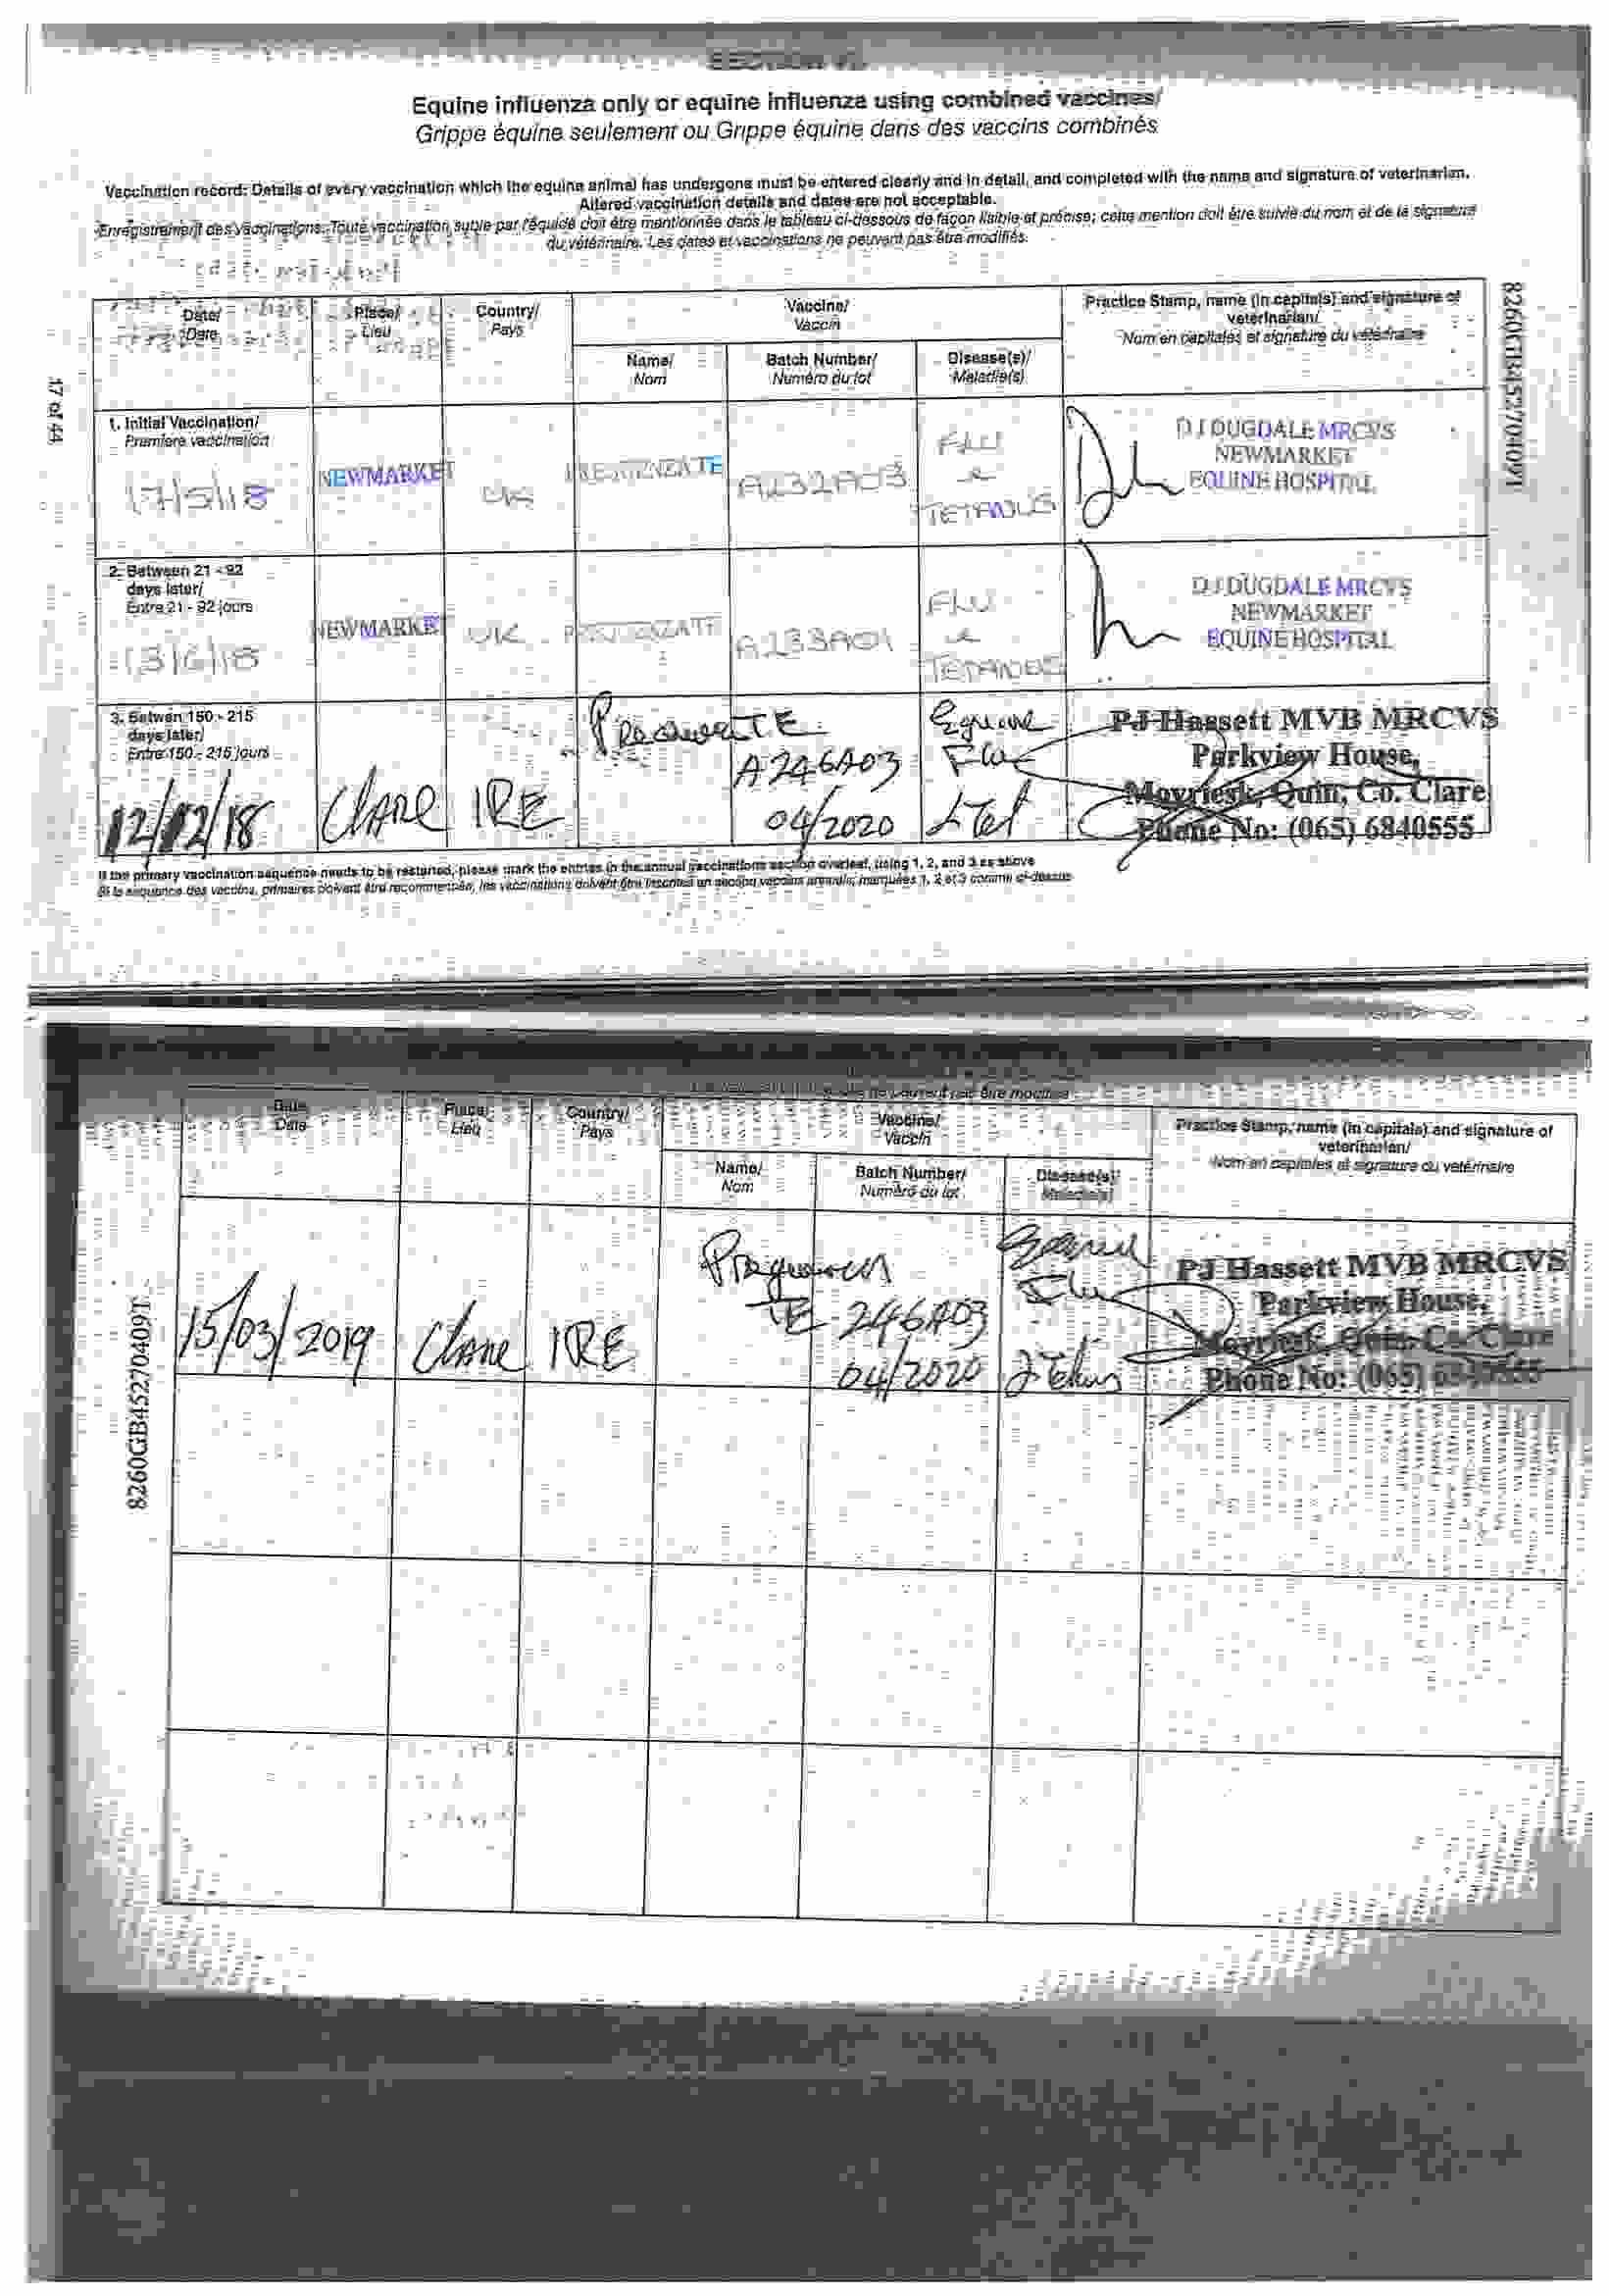 Equine influenza only or equine influenza using combined vaccines/
Grippe équine seulement ou Grippe équine dans des vaccins combinés
Vaccination record: Details of every vaccination which the equine animal has undergone must be entered clearly and in detail, and completed with the name and signature of veterinarian.
Altered vaccination details and dates are not acceptable.
Enregistrement des vaccinations: Toute vaccination subie par l'équidé doit être mentionnée dans le tableau ci-dessous de façon lisible et précise; cette mention doit être suivie du nom et de la signature
du vétérinaire. Les dates et vaccinations ne peuvent pas être modifiés.
17 of 44
Date/
Date
Place/
Lieu
Country/
Pays
Vaccine/
Vaccin
Name/
Nom
Batch Number/
Numéro du lot
Disease(s)/
Maladie(s)
Practice Stamp, name (in capitals) and signature of
veterinarian/
Nom en capitales et signature du vétérinaire
1. Initial Vaccination/
Première vaccination
17/5/18
NEWMARKET
UK
A232A03
FLU
&
TETANUS
D J DUGDALE MRCVS
NEWMARKET
EQUINE HOSPITAL
2. Between 21 - 92
days later/
Entre 21 - 92 jours
13/6/18
NEWMARKET
UK
A233A01
FLU
&
TETANUS
D J DUGDALE MRCVS
NEWMARKET
EQUINE HOSPITAL
3. Betwen 150 - 215
days later/
Entre 150 - 215 jours
12/12/18
Clare
IRE
A246A03
04/2020
Equine
Flu
& Tet
PJ Hassett MVB MRCVS
Parkview House,
Moyriesk, Quin, Co. Clare
Phone No: (065) 6840555
If the primary vaccination sequence needs to be restarted, please mark the entries in the annual vaccinations section overleaf, using 1, 2, and 3 as above
8260GB45270409T
Date
Place/
Lieu
Country/
Pays
Vaccine/
Vaccin
Name/
Nom
Batch Number/
Numéro du lot
Disease(s)/
Maladie(s)
Practice Stamp, name (in capitals) and signature of
veterinarian/
Nom en capitales et signature du vétérinaire
15/03/2019
Clare
IRE
TE
246A03
04/2020
Flu
PJ Hassett MVB MRCVS
Parkview House,
Moyriesk, Quin, Co. Clare
Phone No: (065)